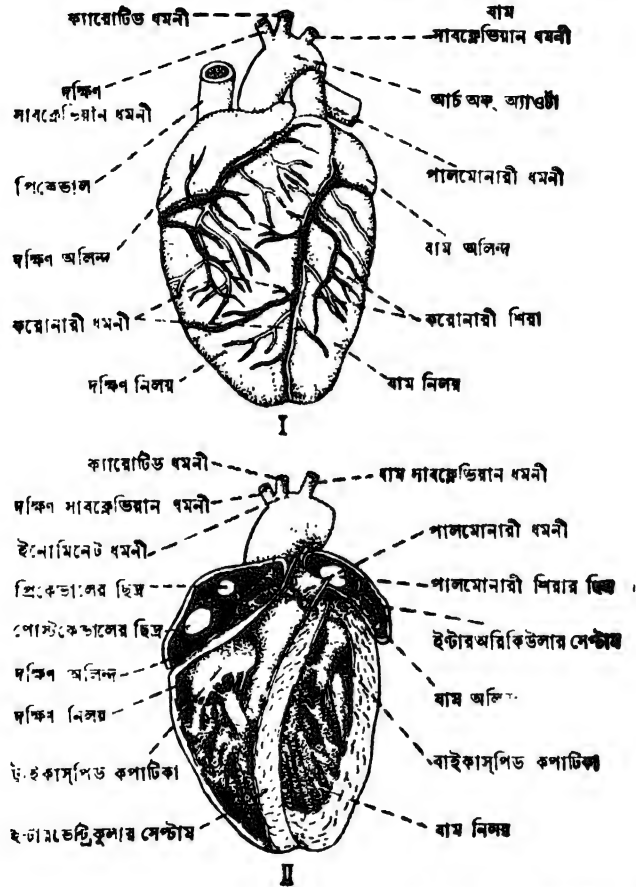 ক্যারোটিড ধমনী
বাম
সাবক্লেভিয়ান ধমনী
দক্ষিণ
সাবক্লেভিয়ান ধমনী
আর্চ অফ্ অ্যাওর্টা
প্রিকেভাল
পালমোনারী ধমনী
দক্ষিণ অলিন্দ
বাম অলিন্দ
করোনারী ধমনী
করোনারী শিরা
দক্ষিণ নিলয়
বাম নিলয়
I
ক্যারোটিড ধমনী
বাম সাবক্লেভিয়ান ধমনী
দক্ষিণ সাবক্লেভিয়ান ধমনী
পালমোনারী ধমনী
ইনোমিনেট ধমনী
প্রিকেভালের ছিদ্র
পালমোনারী শিরার ছিদ্র
পোস্টকেভালের ছিদ্র
ইন্টারঅরিকিউলার সেপ্টাম
দক্ষিণ অলিন্দ
বাম
দক্ষিণ নিলয়
ট্রাইকাস্‌পিড কপাটিকা
বাইকাস্‌পিড কপাটিকা
ইন্টারভেন্ট্রিকুলার সেপ্টাম
বাম নিলয়
II